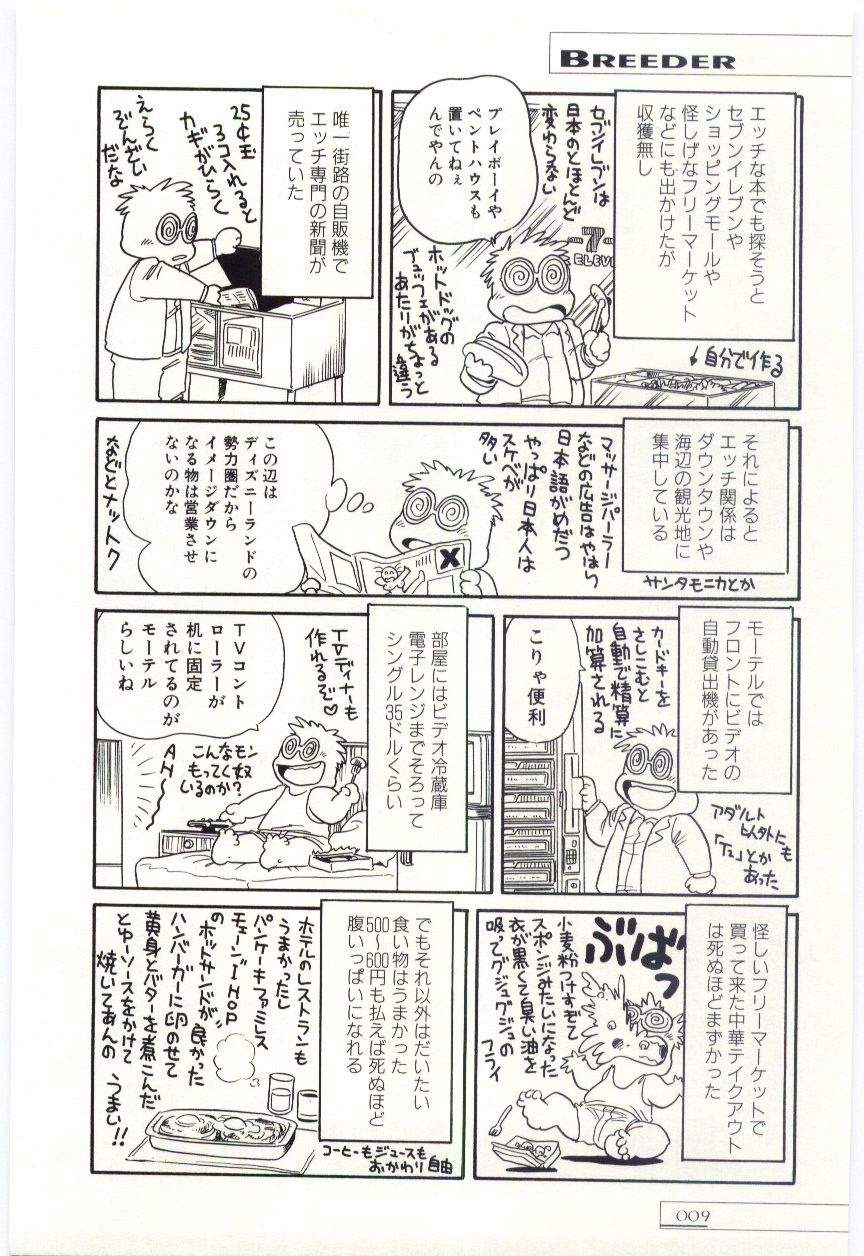 BREEDER
エッチな本でも探そうと
セブンイレブンや
ショッピングモールや
怪しげなフリーマーケット
などにも出かけたが
収獲無し
↓自分で作る
セブンイレブンは
日本のとほとんど
変わらない
7
ELEVE
プレイボーイや
ペントハウスも
置いてねぇ
んでやんの
ホットドッグの
ブュッフェがある
あたりがちょっと
違う
唯一街路の自販機で
エッチ専門の新聞が
売っていた
25¢玉
3コ入れると
カギがひらく
えらく
ぞんざい
だな
それによると
エッチ関係は
ダウンタウンや
海辺の観光地に
集中している
サンタモニカとか
マッサージパーラー
などの広告はやはり
日本語がめだつ
やっぱり日本人は
スケベが
多い
X
この辺は
ディズニーランドの
勢力圏だから
イメージダウンに
なる物は営業させ
ないのかな
などとナットク
モーテルでは
フロントにビデオの
自動貸出機があった
カードキーを
さしこむと
自動で精算に
加算される
こりゃ便利
アダルト
以外にも
「T2」とか
あった
部屋にはビデオ冷蔵庫
電子レンジまでそろって
シングル35ドルくらい
TVディナーも
作れるぞ♡
TVコント
ローラーが
机に固定
されてるのが
モーテル
らしいね
こんなモン
もってく奴
いるのか?
AH
怪しいフリーマーケットで
買って来た中華テイクアウト
は死ぬほどまずかった
ぶばっ
小麦粉つけすぎて
スポンジみたいになった
衣が黒くて臭い油を
吸ってグジュグジュの
フライ
でもそれ以外はだいたい
食い物はうまかった
500〜600円も払えば死ぬほど
腹いっぱいになれる
コーヒーもジュースも
おかわり自由
ホテルのレストランも
うまかったし
パンケーキファミレス
チェーンIHOP
のホットサンドが良かった
ハンバーガーに卵のせて
黄身とバターを煮こんだ
とゆーソースをかけて
焼いてあんの うまい!!
009